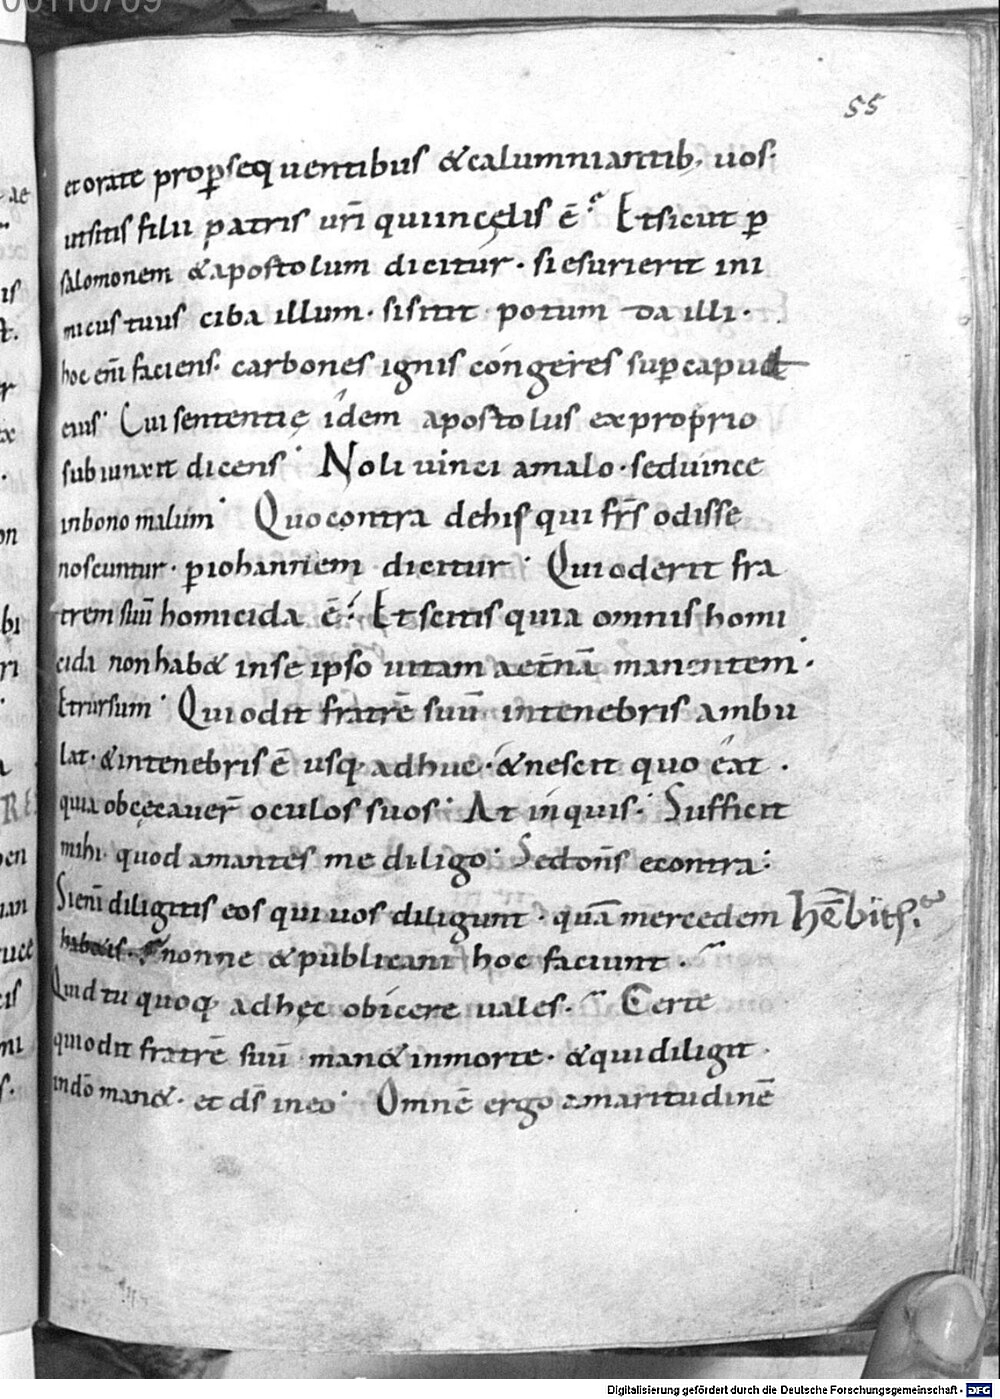 55
et orate p͞psequentibus & calumniantib; uos.
ut sitis filii patris uri̅ qui in cęlis e̅. Et sicut ꝑ
salomonem & apostolum dicitur. si esurierit ini
micus tuus ciba illum. si sitit potum da illi.
hoc eni̅ faciens. carbones ignis congeres suꝑ caput
eius. Cui sententię idem apostolus ex proprio
subiunxit dicens. Noli uinci a malo. sed uince
in bono malum. Quo contra de his qui fr̅s odisse
noscuntur. ꝑ iohannem dicitur. Qui oderit fra
trem suu̅ homicida e̅. Et scitis quia omnis homi
cida non hab& in se ipso uitam aet̅na̅ manentem.
Et rursum. Qui odit fratre̅ suu̅ in tenebris ambu
lat. & in tenebris e̅ usq; adhuc. & nescit quo eat.
quia obcęcauer̅ oculos suos. At inquis. Sufficit
mihi quod amantes me diligo. Sed dn̅s econtra.
Si eni̅ diligitis eos qui uos diligunt. qua̅ mercedem he̅bitis.
habebitis. nonne & publicani hoc faciunt.
Quid tu quoq; ad hęc obicere uales. Certe
qui odit fratre̅ suu̅ man& in morte. & qui diligit
in do̅ man&. et ds̅ in eo. Omne̅ ergo amaritudine̅
Digitalisierung gefördert durch die Deutsche Forschungsgemeinschaft - DFG